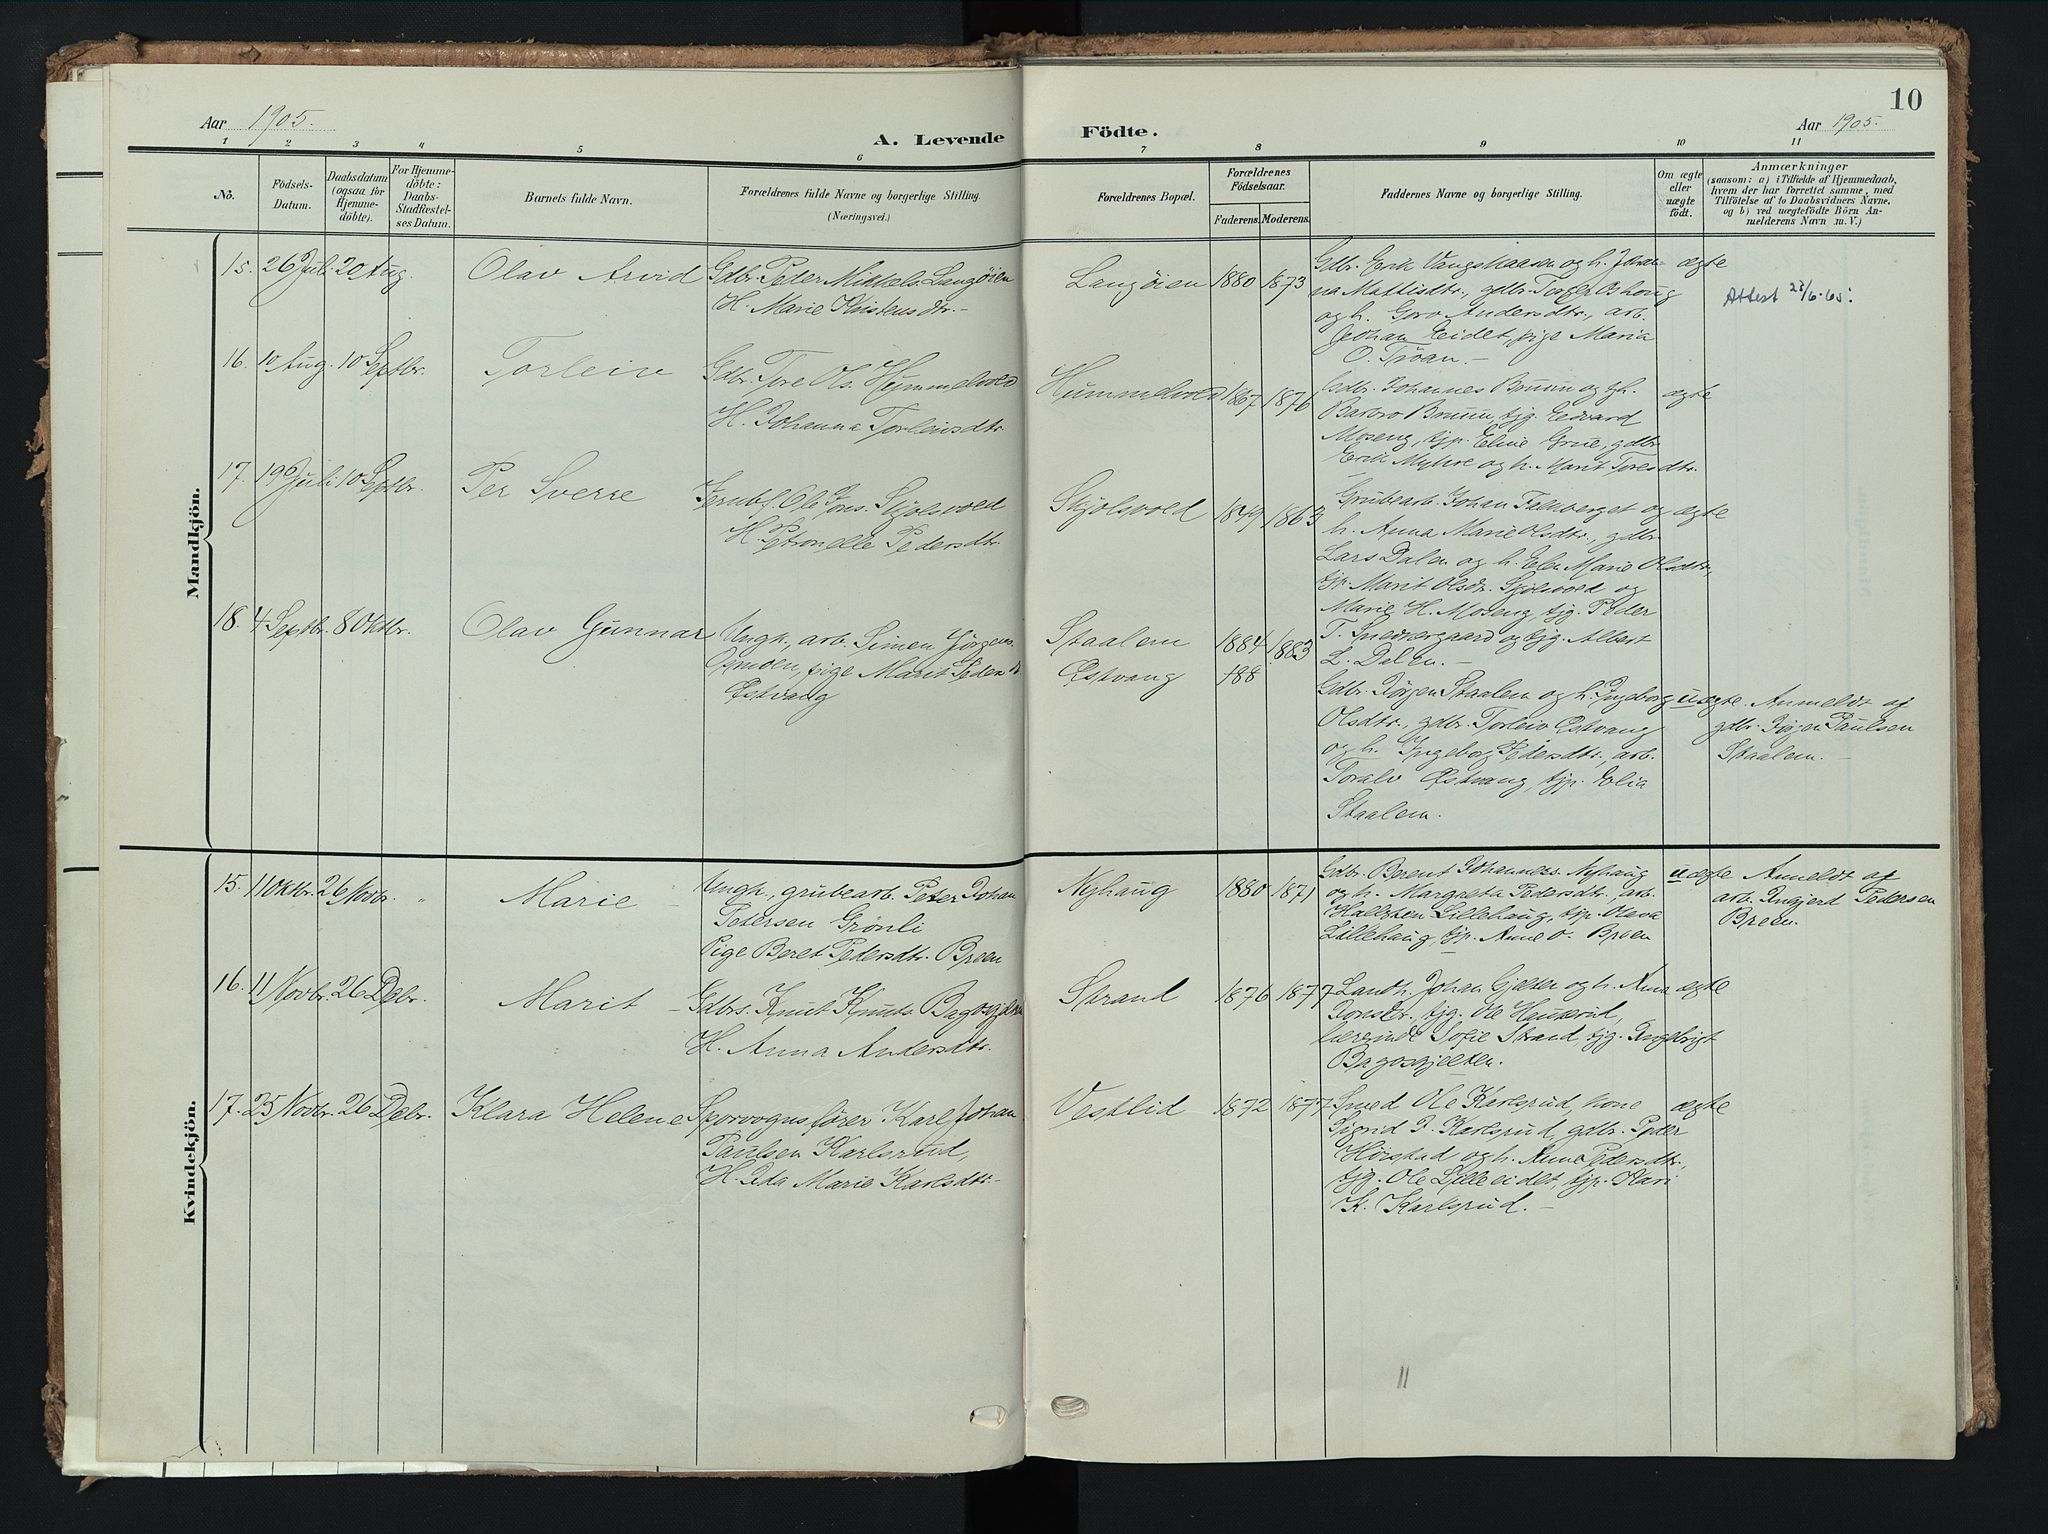 10
Aar 1905.
A. Levende Födte.
Aar 1905.
1 2 3 4 5 6 7 8 9 10 11
No.
Födsels-
Datum.
Daabsdatum
(ogsaa for
Hjemme-
döbte).
For Hjemme-
döbte:
Daabs-
Stadfæstel-
ses Datum.
Barnets fulde Navn.
Forældrenes fulde Navne og borgerlige Stilling.
(Næringsvei.)
Forældrenes Bopæl.
Forældrenes
Födselsaar.
Faderens. Moderens.
Faddernes Navne og borgerlige Stilling.
Om ægte
eller
uægte
födt.
Anmærkninger
(saasom: a) i Tilfælde af Hjemmedaab,
hvem der har forrettet samme, med
Tilföielse af to Daabsvidners Navne,
og b) ved uægtefödte Börn An-
melderens Navn m. V.)
Mandkjön.
15. 26 Juli 20 Aug. Olav Arvid
Gdbr. Peder Mikkels. Langöien
H. Marie Kristensdtr. -
Langöien 1880 1873
Gdbr. Erik Vangskaasen og h. Johan-
na Mattisdtr., gdbr. Torger Oshoug
og h. Goro Andersdtr., arb.
Johan Eidet, pige Maria
O. Tröan. -
ægte
Attest 22/6-65.
16. 10 Aug. 10 Septbr. Torleiv
Gdbr. Tore Ols. Hummelvold
H. Johanna Torleivsdtr.
Hummelvold 1867 1876
Gdbr. Johannes Bruun og h.
Barbro Bruun, tjg. Edvard
Moseng, tjp. Eline Grue, gdbr.
Erik Myhre og h. Marit Toresdtr.
ægte
17. 19 Juli 10 Septbr. Per Sverre
Jernbf. Ole Jons. Skjolsvold
H. Petronelle Pedersdtr.
Skjolsvold 1849 1863
Grubearb. Johan Falkberget og
h. Anna Marie Olsdtr., gdbr.
Lars Dalen og h. Elen Marie Olsdtr.,
tjp. Marit Olsdr. Skjolsvold og
Marie H. Moseng, tjg. Peder
T. Snedkergaard og tjg. Albert
L. Dalen. -
ægte
18. 4 Septbr. 8 Oktbr. Olav Gunnar
Ungk., arb. Simen Jörgens.
Osmoen, pige Marit Peders d.
Østvang
Staalem 1884 1883
Østvang 188
Gdbr. Jörgen Staalem og h. Ingeborg
Olsdtr., gdbr. Torleiv Østvang
og h. Ingeborg Pedersdtr., arb.
Toralv Østvang, tjp. Elia
Staalem.
uægte.
Anmeldt af
gdbr. Jörgen Paulsen
Staalem. -
Kvindekjön.
15. 11 Oktbr. 26 Novbr. " Marie -
Ungk., grubearb. Peter Johan
Petersen Grönli
Pige Beret Pedersdtr. Breen
Nyhaug 1880 1871
Gdbr. Berent Johanness. Nyhaug
og h. Margreta Pedersdtr., arb.
Hallsten Lillehaug, tjp. Olava
Lillehaug, tjp. Anne O. Breen
uægte
Anmeldt af
arb. Ingjert Pedersen
Breen.
16. 11 Novbr. 26 Debr. Marit -
Gdbrs. Knut Knuts. Bagosgjelten
H. Anna Andersdtr.
Strand 1876 1877
Landh. Johan Gjelten og h. Anna
Jonsdr., tjg. Ole Haukrud,
lærerinde Sofie Strand, tjg. Ingbrigt
Bagosgjelten.
ægte
17. 25 Novbr. 26 Debr. Klara Helene
Sporvognsfører Karl Johan
Paulsen Karlsrud,
H. Ida Marie Karlsdtr. -
Vestlid 1872 1877
Smed Ole Karlsrud, kone
Sigrid J. Karlsrud, gdbr. Peder
Hörstad og h. Anne Pedersdtr.,
tjg. Ole Lilleeidet, tjp. Kari
K. Karlsrud. -
ægte
11